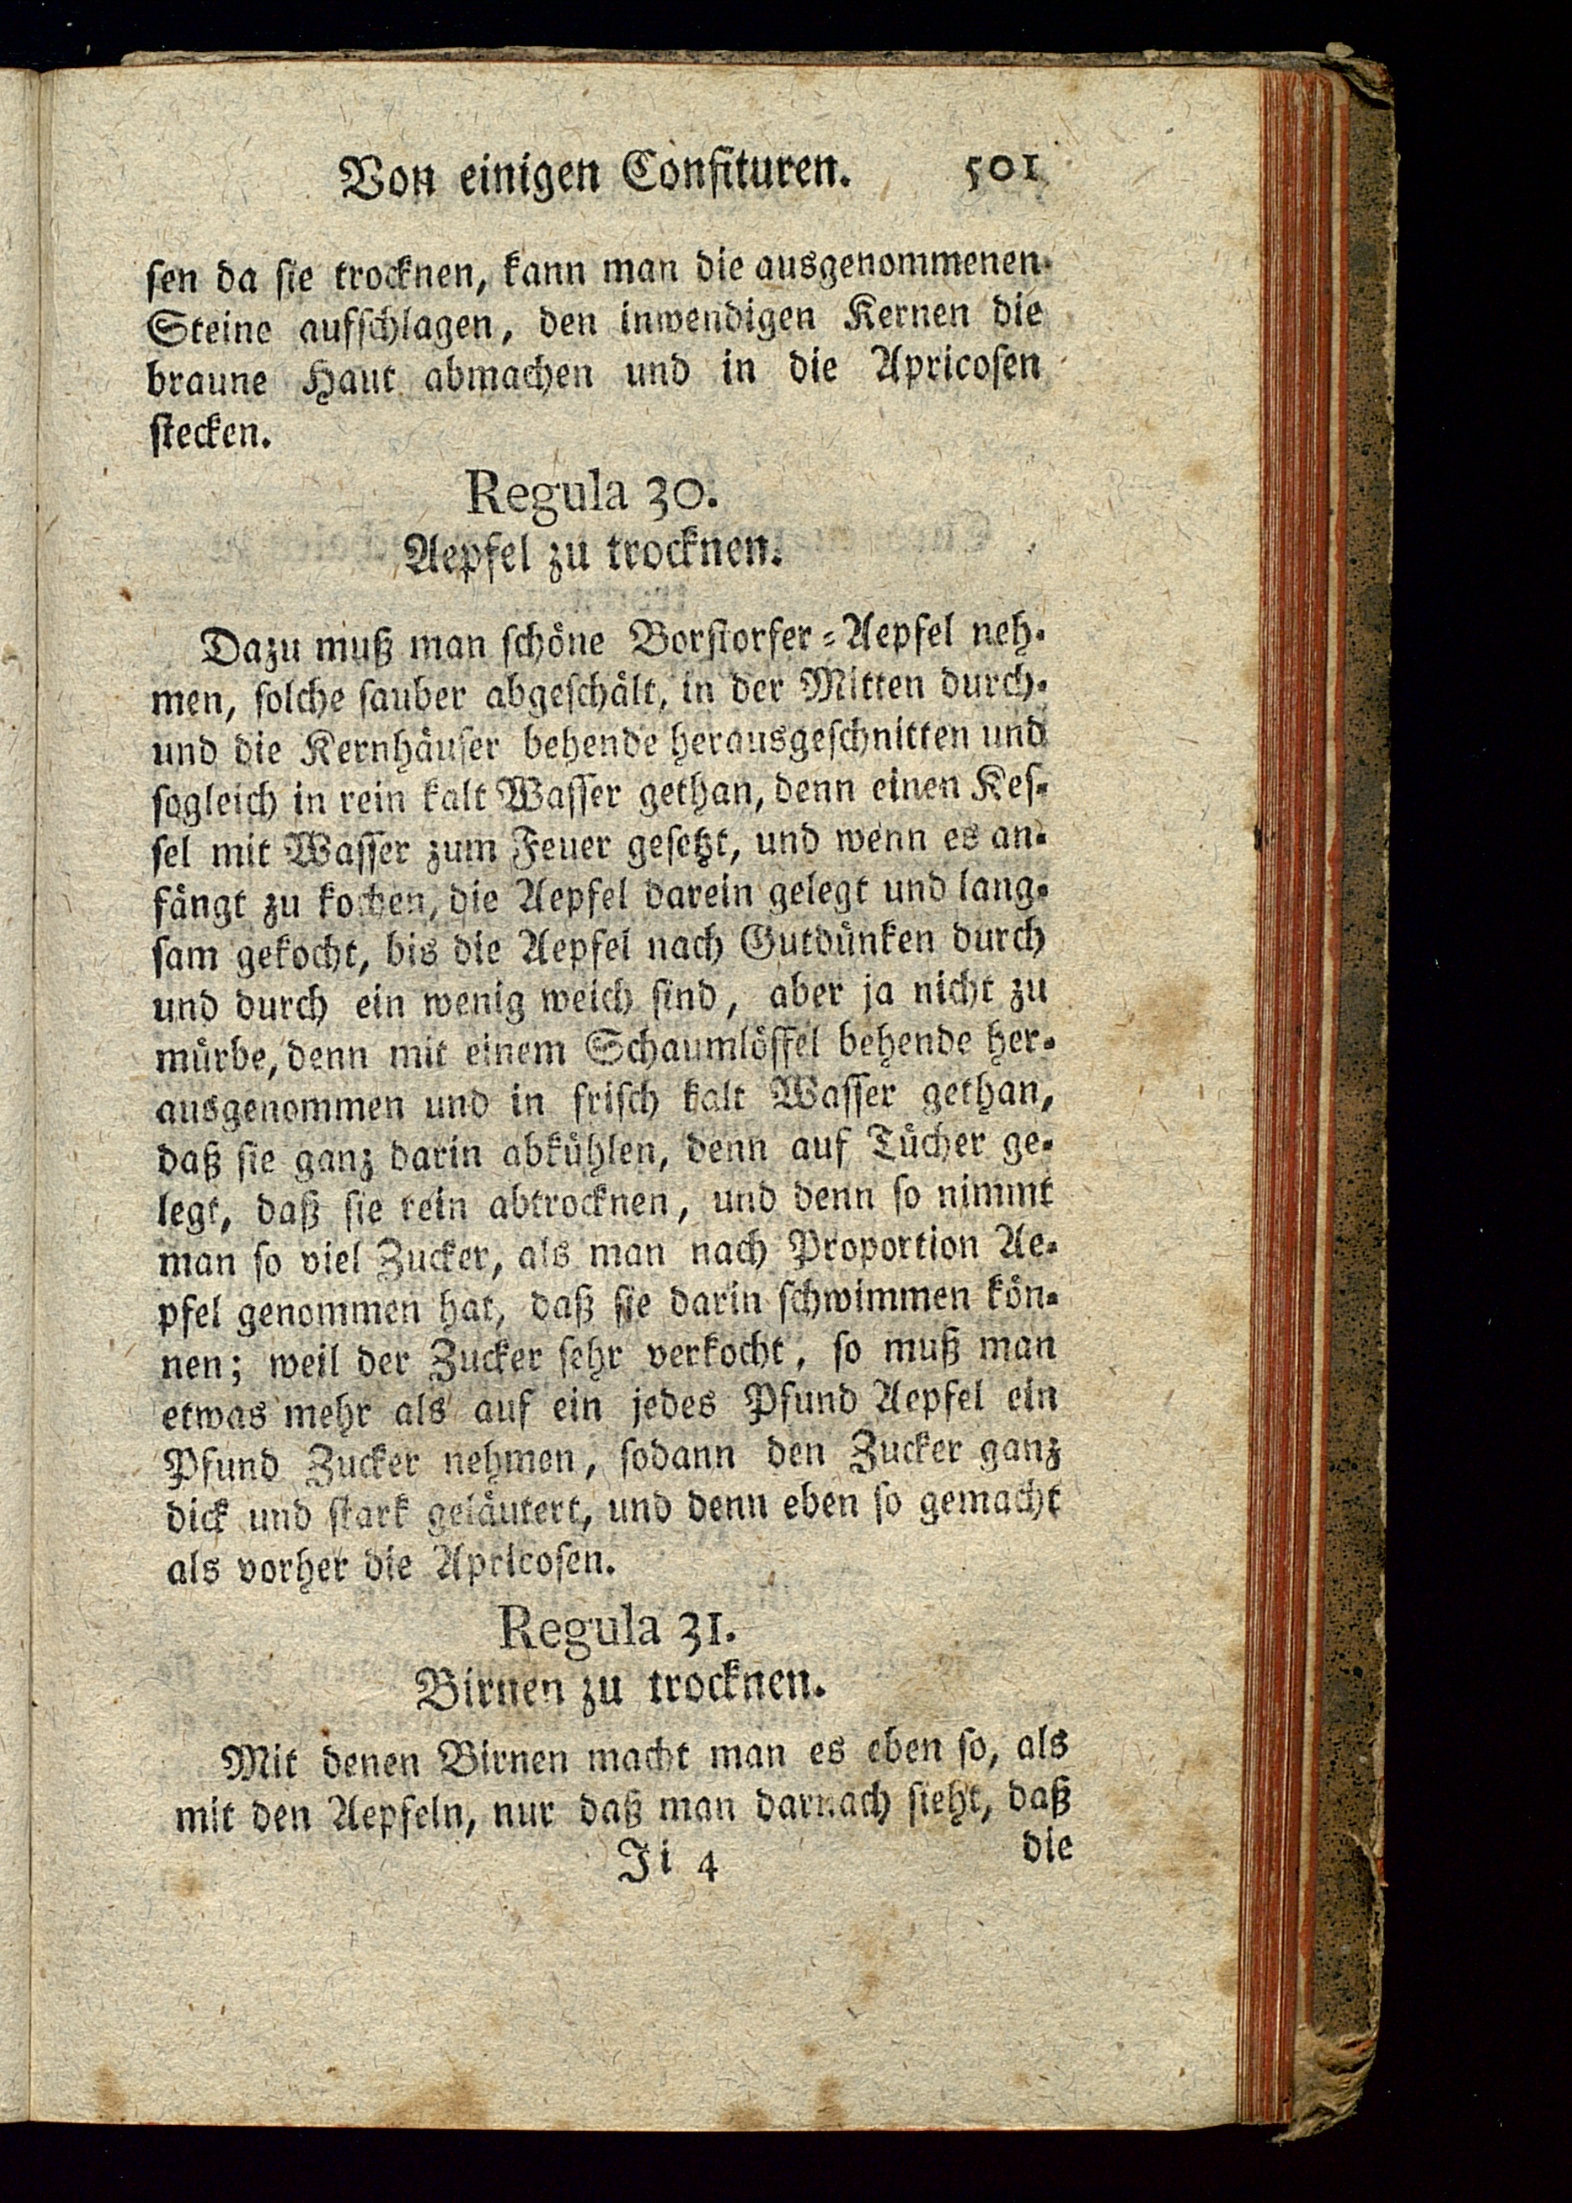 Von einigen Confituren. 501
ſen da ſie trocknen, kann man die ausgenommenen
Steine aufſchlagen, den inwendigen Kernen die
braune Haut abmachen und in die Apricoſen
ſtecken.
Regula 30.
Aepfel zu trocknen.
Dazu muß man ſchöne Borſtorfer-Aepfel neh-
men, ſolche ſauber abgeſchält, in der Mitten durch-
und die Kernhäuſer behende herausgeſchnitten und
ſogleich in rein kalt Waſſer gethan, denn einen Keſ-
ſel mit Waſſer zum Feuer geſetzt, und wenn es an-
fängt zu kochen, die Aepfel darein gelegt und lang-
ſam gekocht, bis die Aepfel nach Gutdünken durch
und durch ein wenig weich ſind, aber ja nicht zu
mürbe, denn mit einem Schaumlöffel behende her-
ausgenommen und in friſch kalt Waſſer gethan,
daß ſie ganz darin abkühlen, denn auf Tücher ge-
legt, daß ſie rein abtrocknen, und denn ſo nimmt
man ſo viel Zucker, als man nach Proportion Ae-
pfel genommen hat, daß ſie darin ſchwimmen kön-
nen; weil der Zucker ſehr verkocht, ſo muß man
etwas mehr als auf ein jedes Pfund Aepfel ein
Pfund Zucker nehmen, ſodann den Zucker ganz
dick und ſtark geläutert, und denn eben ſo gemacht
als vorher die Apricoſen.
Regula 31.
Birnen zu trocknen.
Mit denen Birnen macht man es eben ſo, als
mit den Aepfeln, nur daß man darnach ſieht, daß
Ji 4 die